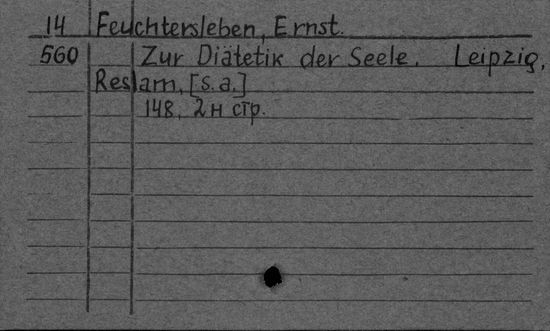 14 Feuchtersleben, Ernst.
560 Zur Diätetik der Seele. Leipzig,
Reslam, [s.a.]
148, 2н стр.